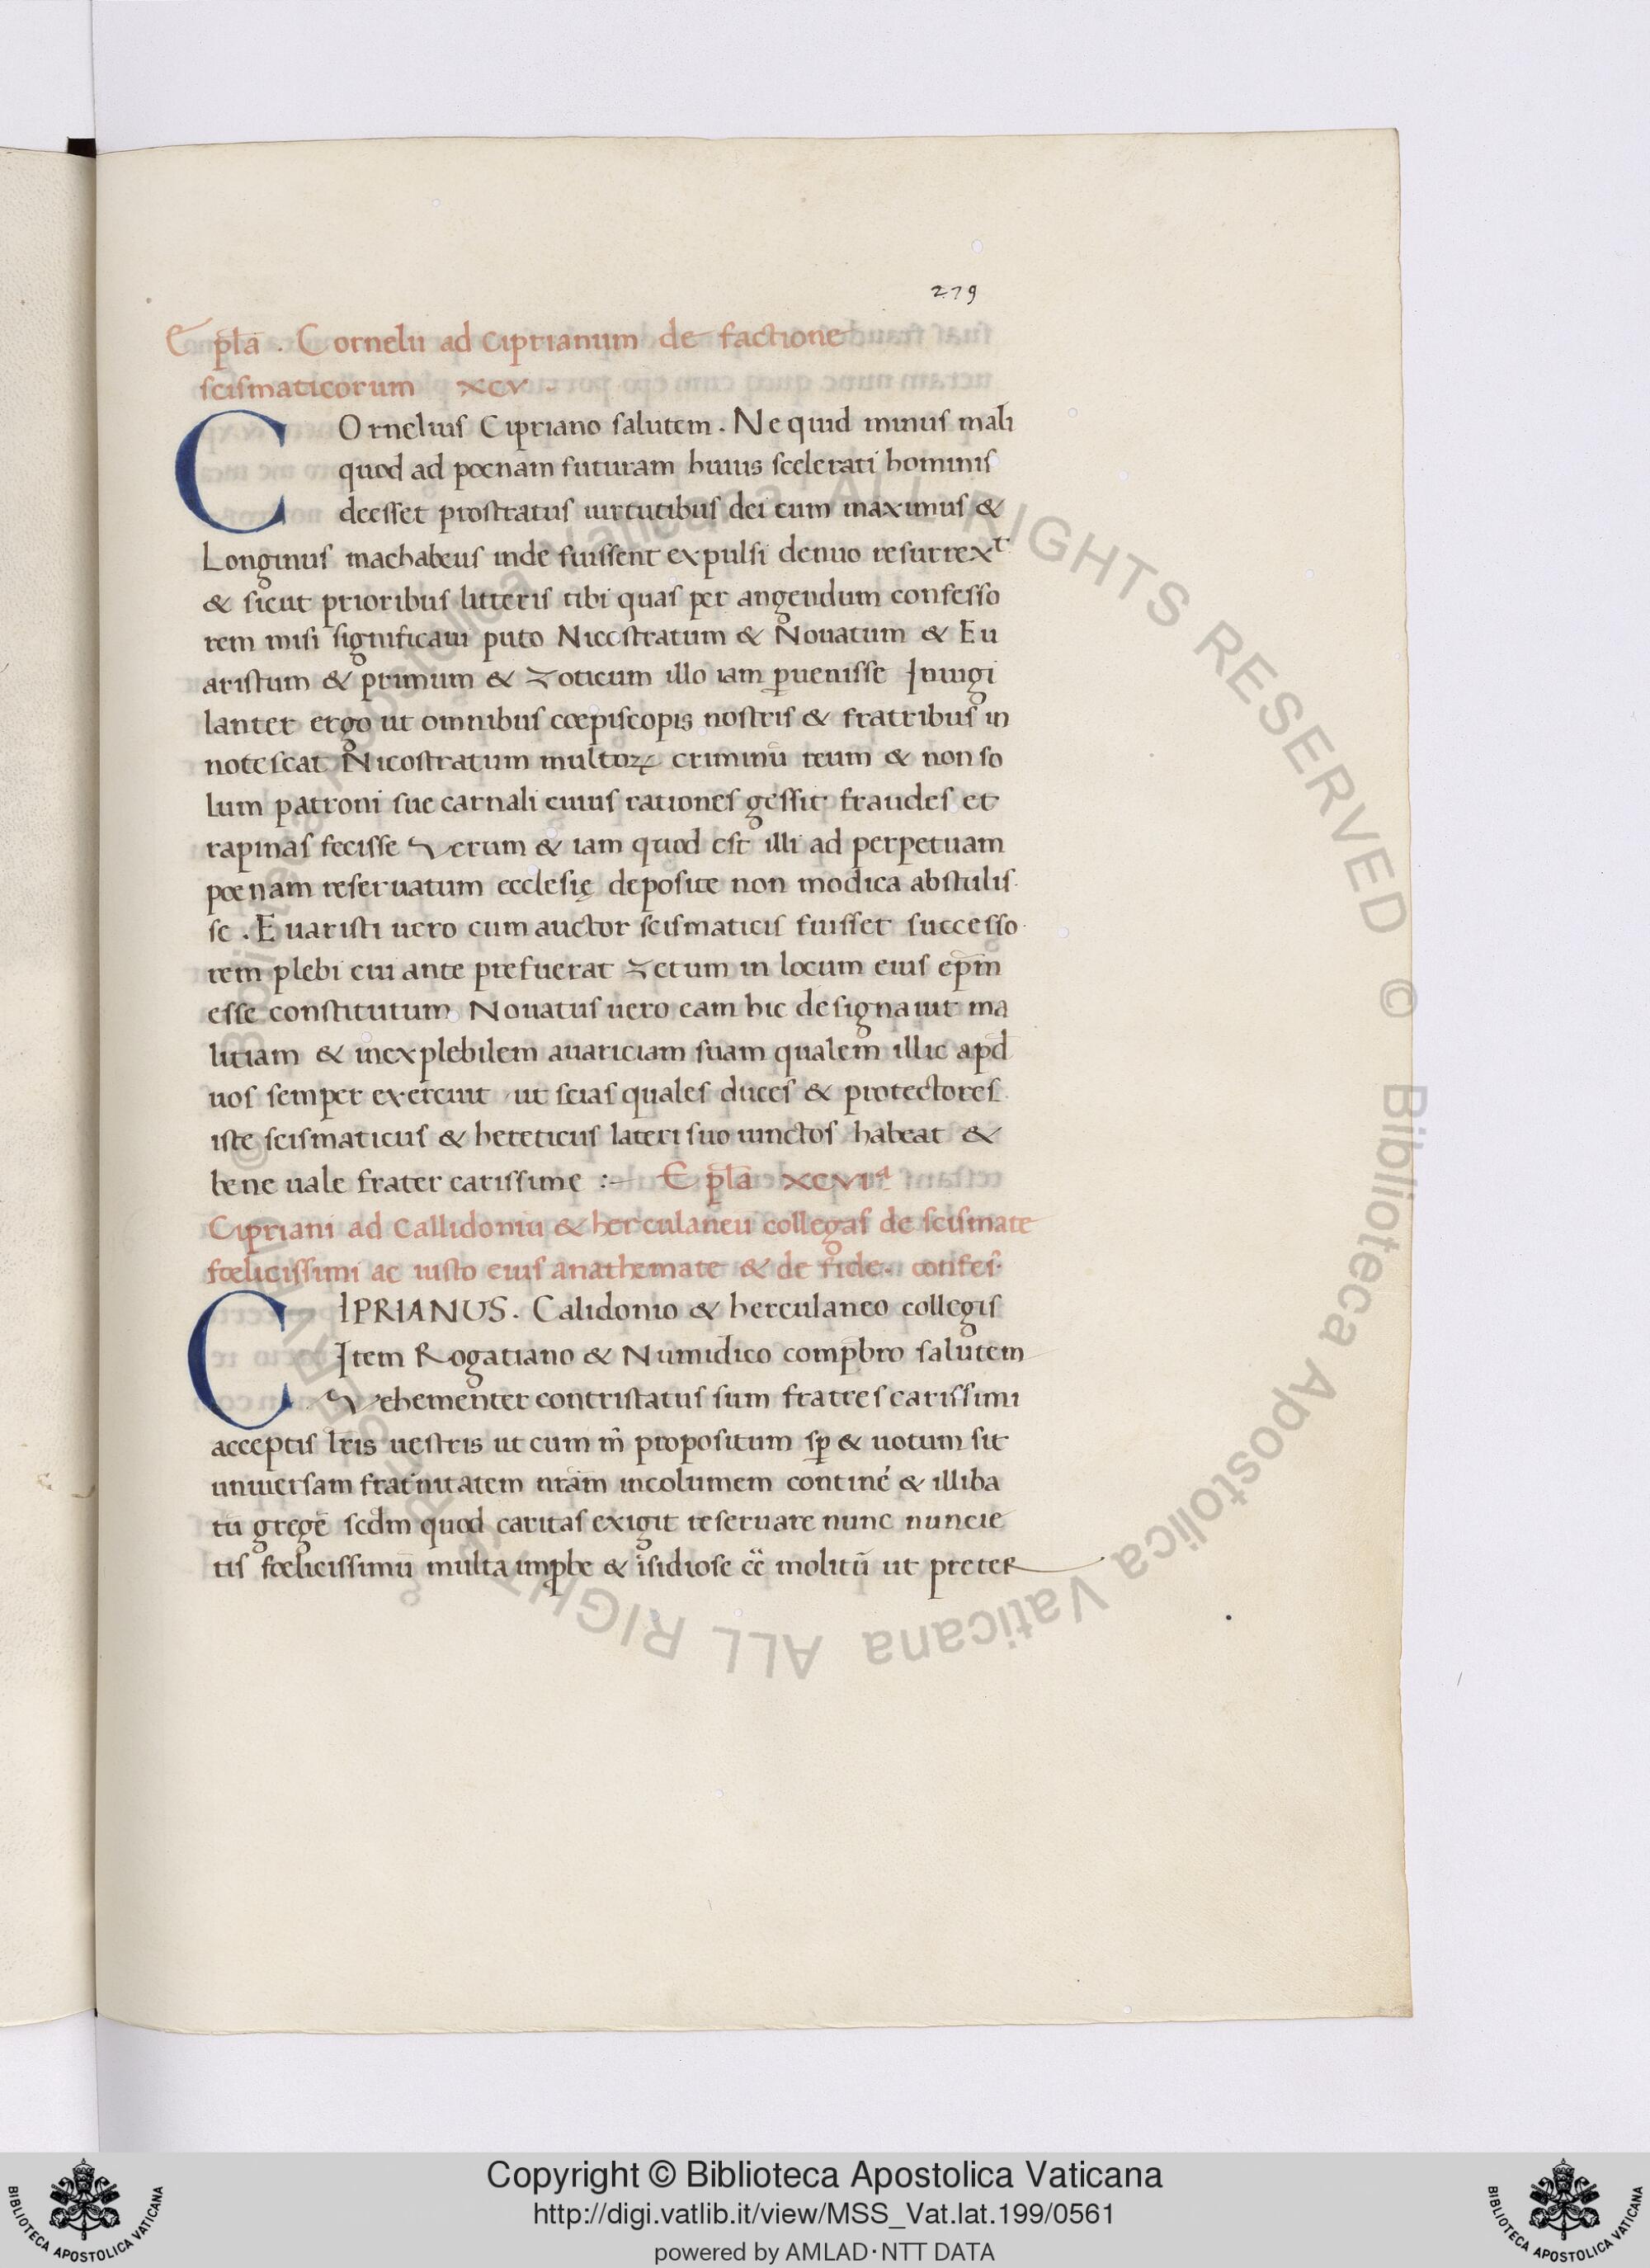 279
Epl̅a . Cornelii ad Ciprianum de factione
scismaticorum xcv .
COrnelius Cipriano salutem . Ne quid minus mali
quod ad poenam futuram huius scelerati hominis
deesset prostratus uirtutibus dei cum maximus &
Longinus machabeus inde fuissent expulsi denuo resurrexᵗ
& sicut prioribus litteris tibi quas per angendum confesso
rem misi significaui puto Nicostratum & Nouatum & Eu
aristum & primum & Zoticum illo iam p̱uenisse Inuigi
lanter ergo ut omnibus coepiscopis nostris & fratribus in
notescat Nicostratum multoꝝ criminū reum & non so
lum patroni sue carnali cuius rationes gessit fraudes et
rapinas fecisse Verum & iam quod est illi ad perpetuam
poenam reseruatum ecclesię deposite non modica abstulis
se . Euaristi uero cum auctor scismaticis fuisset successo
rem plebi cui ante prefuerat Zetum in locum eius ep̅m
esse constitutum Nouatus uero eam hic designauit ma
litiam & inexplebilem auariciam suam qualem illic apd̅
uos semper exercuit ut scias quales duces & protectores
iste scismaticus & hereticus lateri suo iunctos habeat &
bene uale frater carissime :~ Epl̅a xcviᵃ
Cipriani ad Callidoniū & herculaneū collegas de scismate
foelicissimi ac iusto eius anathemate & de fide. confes̑.
CIPRIANUS . Calidonio & herculaneo collegis
Item Rogatiano & Numidico compb̅ro salutem
Vehementer contristatus sum fratres carissimi
acceptis lr̅is uestris ut cum m̑ propositum sp̱ & uotum sit
uniuersam frat̑nitatem nr̅am incolumem contine᷑ & illiba
tū gregē scdm̅ quod caritas exigit reseruare nunc nuncie
tis foelicissimū multa imꝓbe & īsidiose ēē molitū ut preter
© Biblioteca Apostolica Vaticana ALL RIGHTS RESERVED © Biblioteca Apostolica Vaticana ALL RIGHTS RESERVED
BIBLIOTECA APOSTOLICA VATICANA
Copyright © Biblioteca Apostolica Vaticana
http://digi.vatlib.it/view/MSS_Vat.lat.199/0561
powered by AMLAD·NTT DATA
BIBLIOTECA APOSTOLICA VATICANA